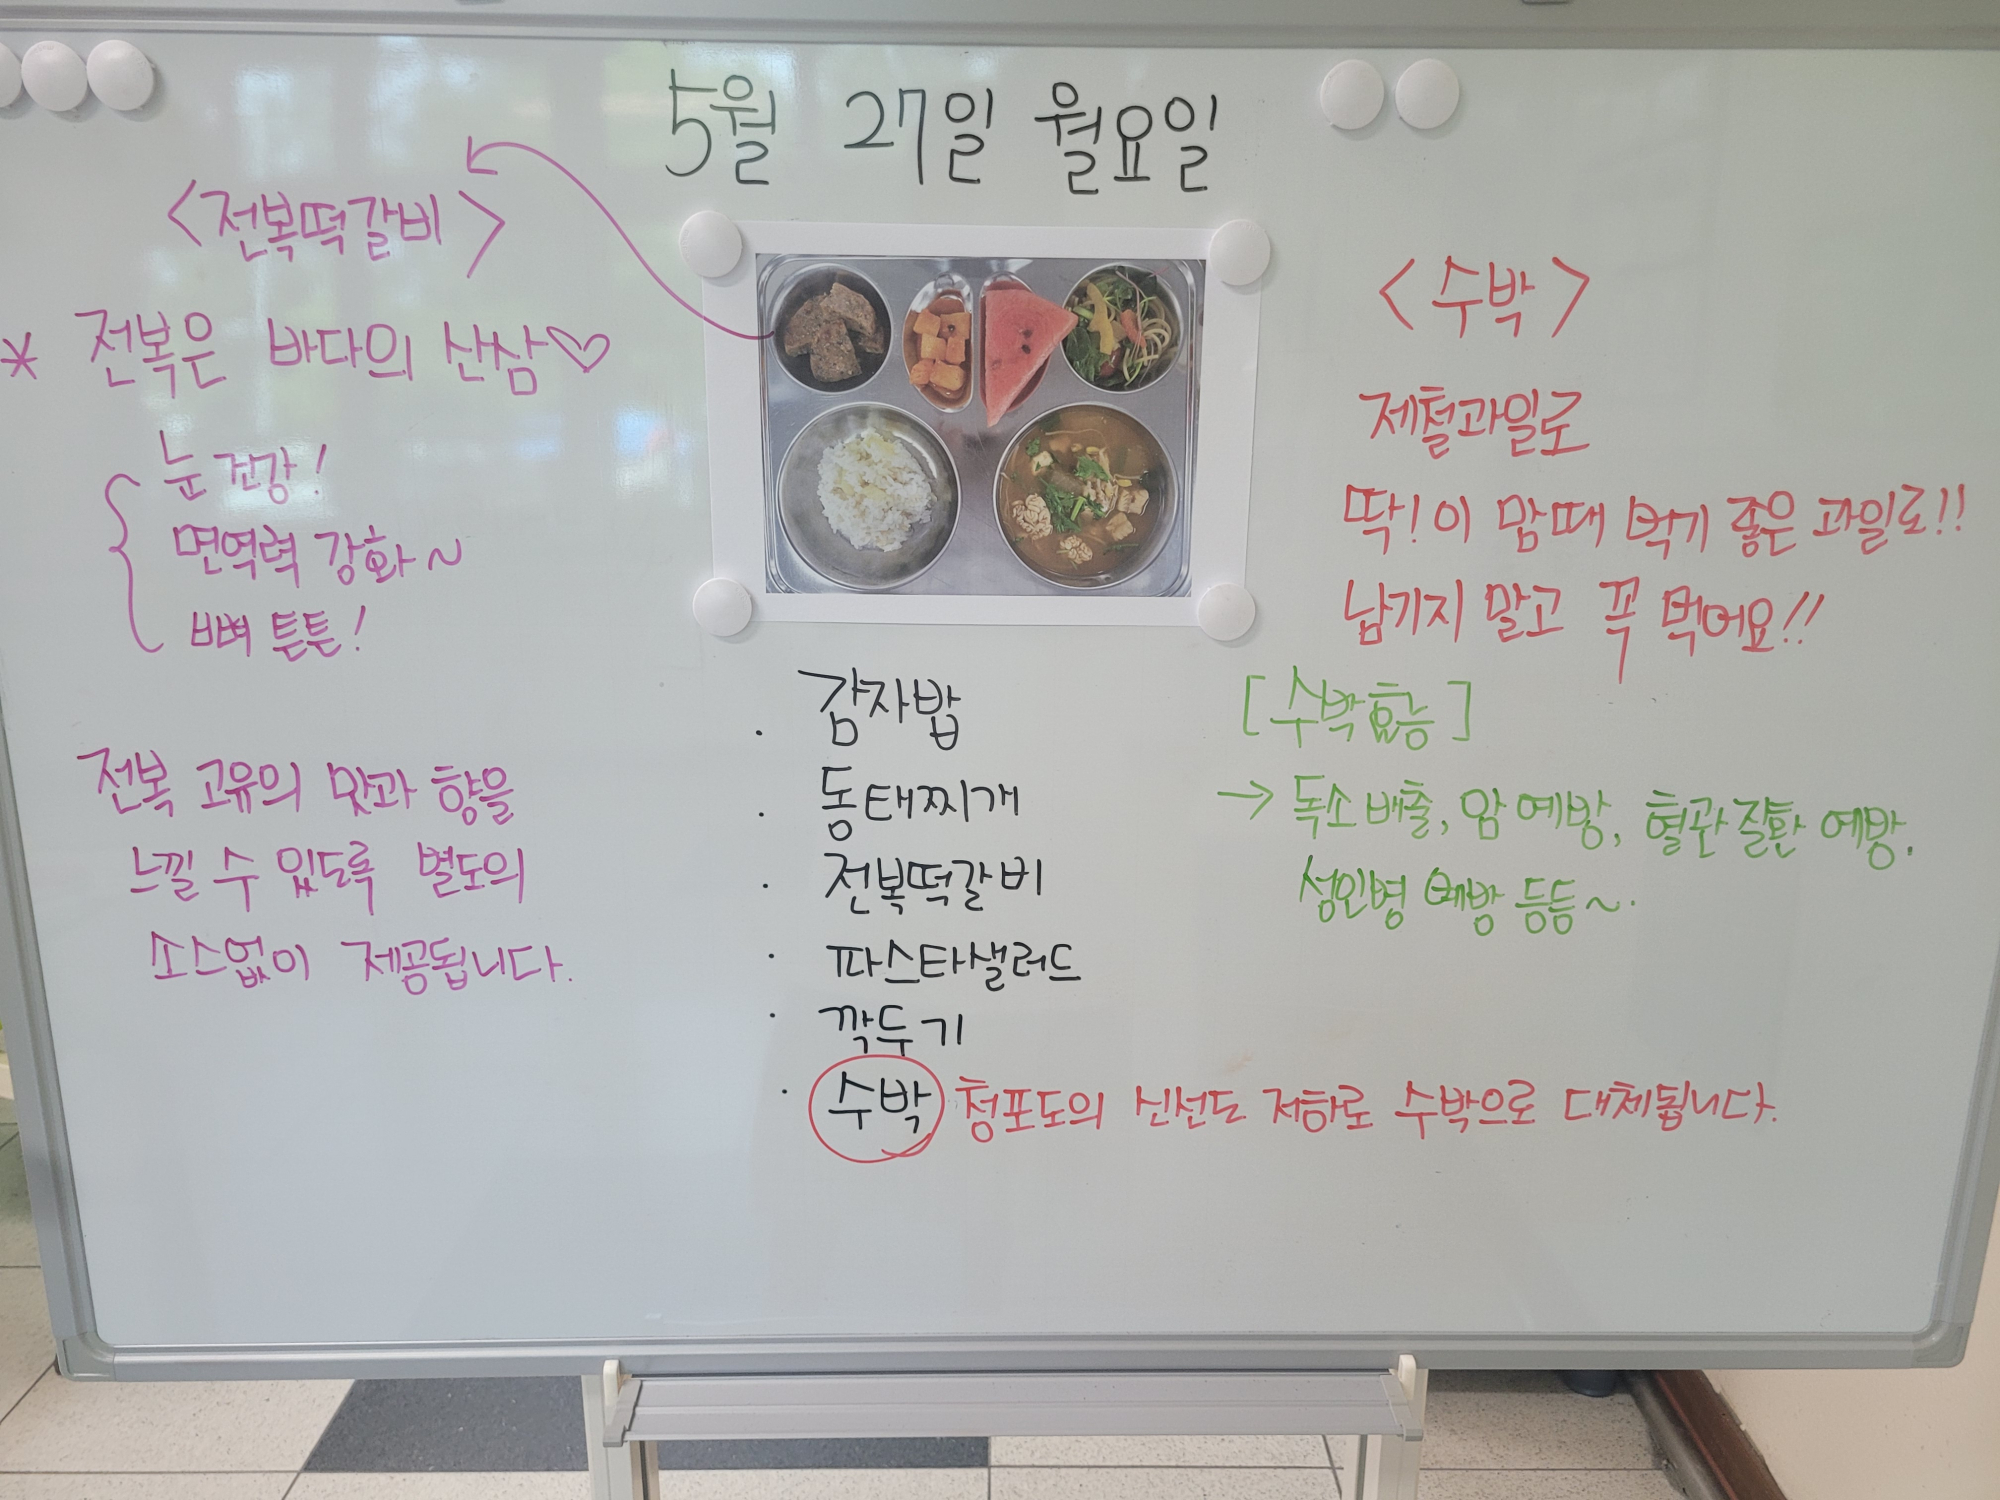 5월 27일 월요일
<전복떡갈비>
* 전복은 바다의 산삼♡
눈 건강!
면역력 강화~
뼈 튼튼!
전복 고유의 맛과 향을
느낄 수 있도록 별도의
소스없이 제공됩니다.
· 감자밥
· 동태찌개
· 전복떡갈비
· 파스타샐러드
· 깍두기
· 수박 청포도의 신선도 저하로 수박으로 대체됩니다.
<수박>
제철과일로
딱! 이 맘때 먹기 좋은 과일로!!
남기지 말고 꼭 먹어요!!
[수박효능]
→ 독소배출, 암 예방, 혈관질환 예방.
성인병 예방 등등~.